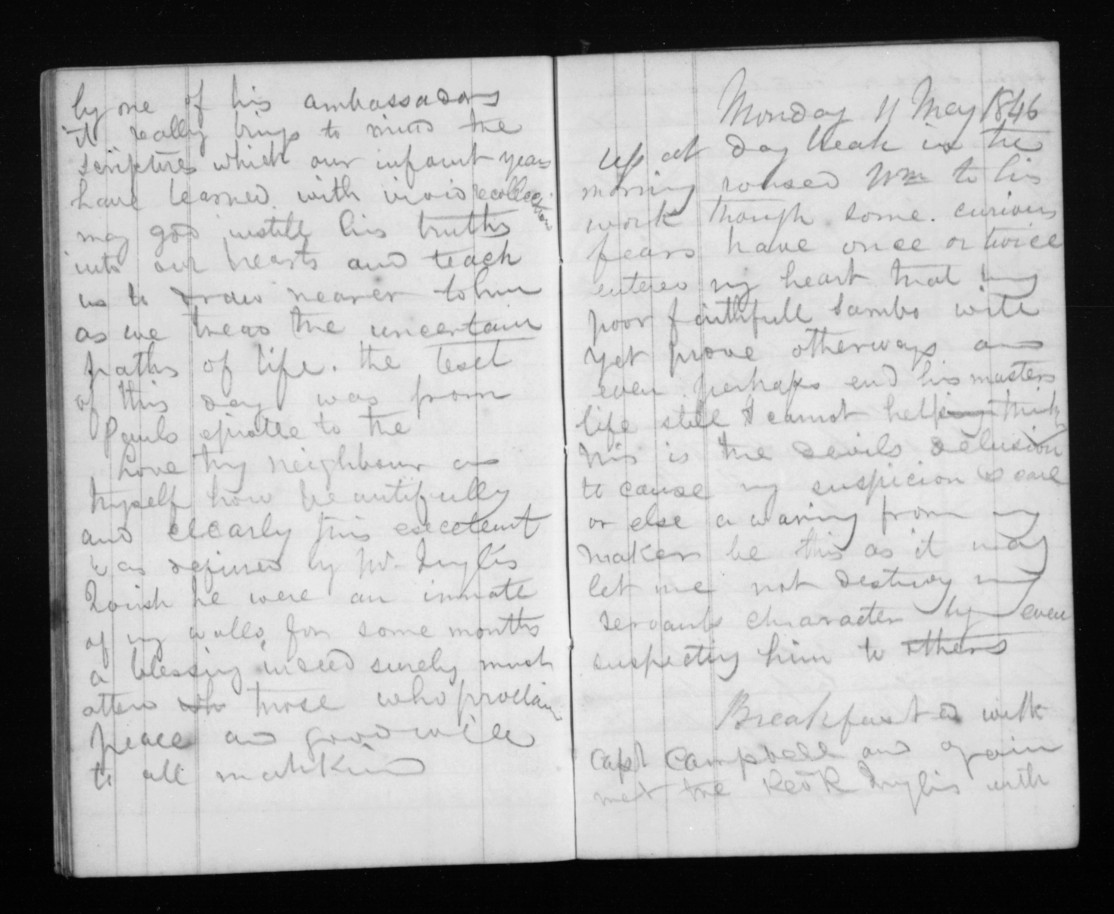 by one of his ambassadors
it really brings to mind the
scriptures which our infant years
have learned. with vivid recollection
may god instill his truths
into our hearts and teach
us to draw nearer to him
as we tread the uncertain
paths of life. the text
of this day was from
Pauls epistle to the
Love thy neighbour as
thyself how beautifully
and clearly this excelent
was defined by Mr. Inglis
I wish he were an inmate
of my walls for some months
a blessing indeed surely must
atten those who proclaim
peace and good will
to all mankind
Monday 11 May 1846
up at day break in the
morning roused Wm to his
work though some. curious
fears have once or twice
entered my heart that my
poor faithfull Sambo will
yet prove otherways and
even perhaps end his masters
life still I cannot help think
this is the devils delusion
to cause my suspicion & care
or else a waring from my
maker be this as it may
let me not destroy my
servants character by even
suspecting him to others
Breakfasted with
Capt Campbell and again
met the Revd R Inglis with